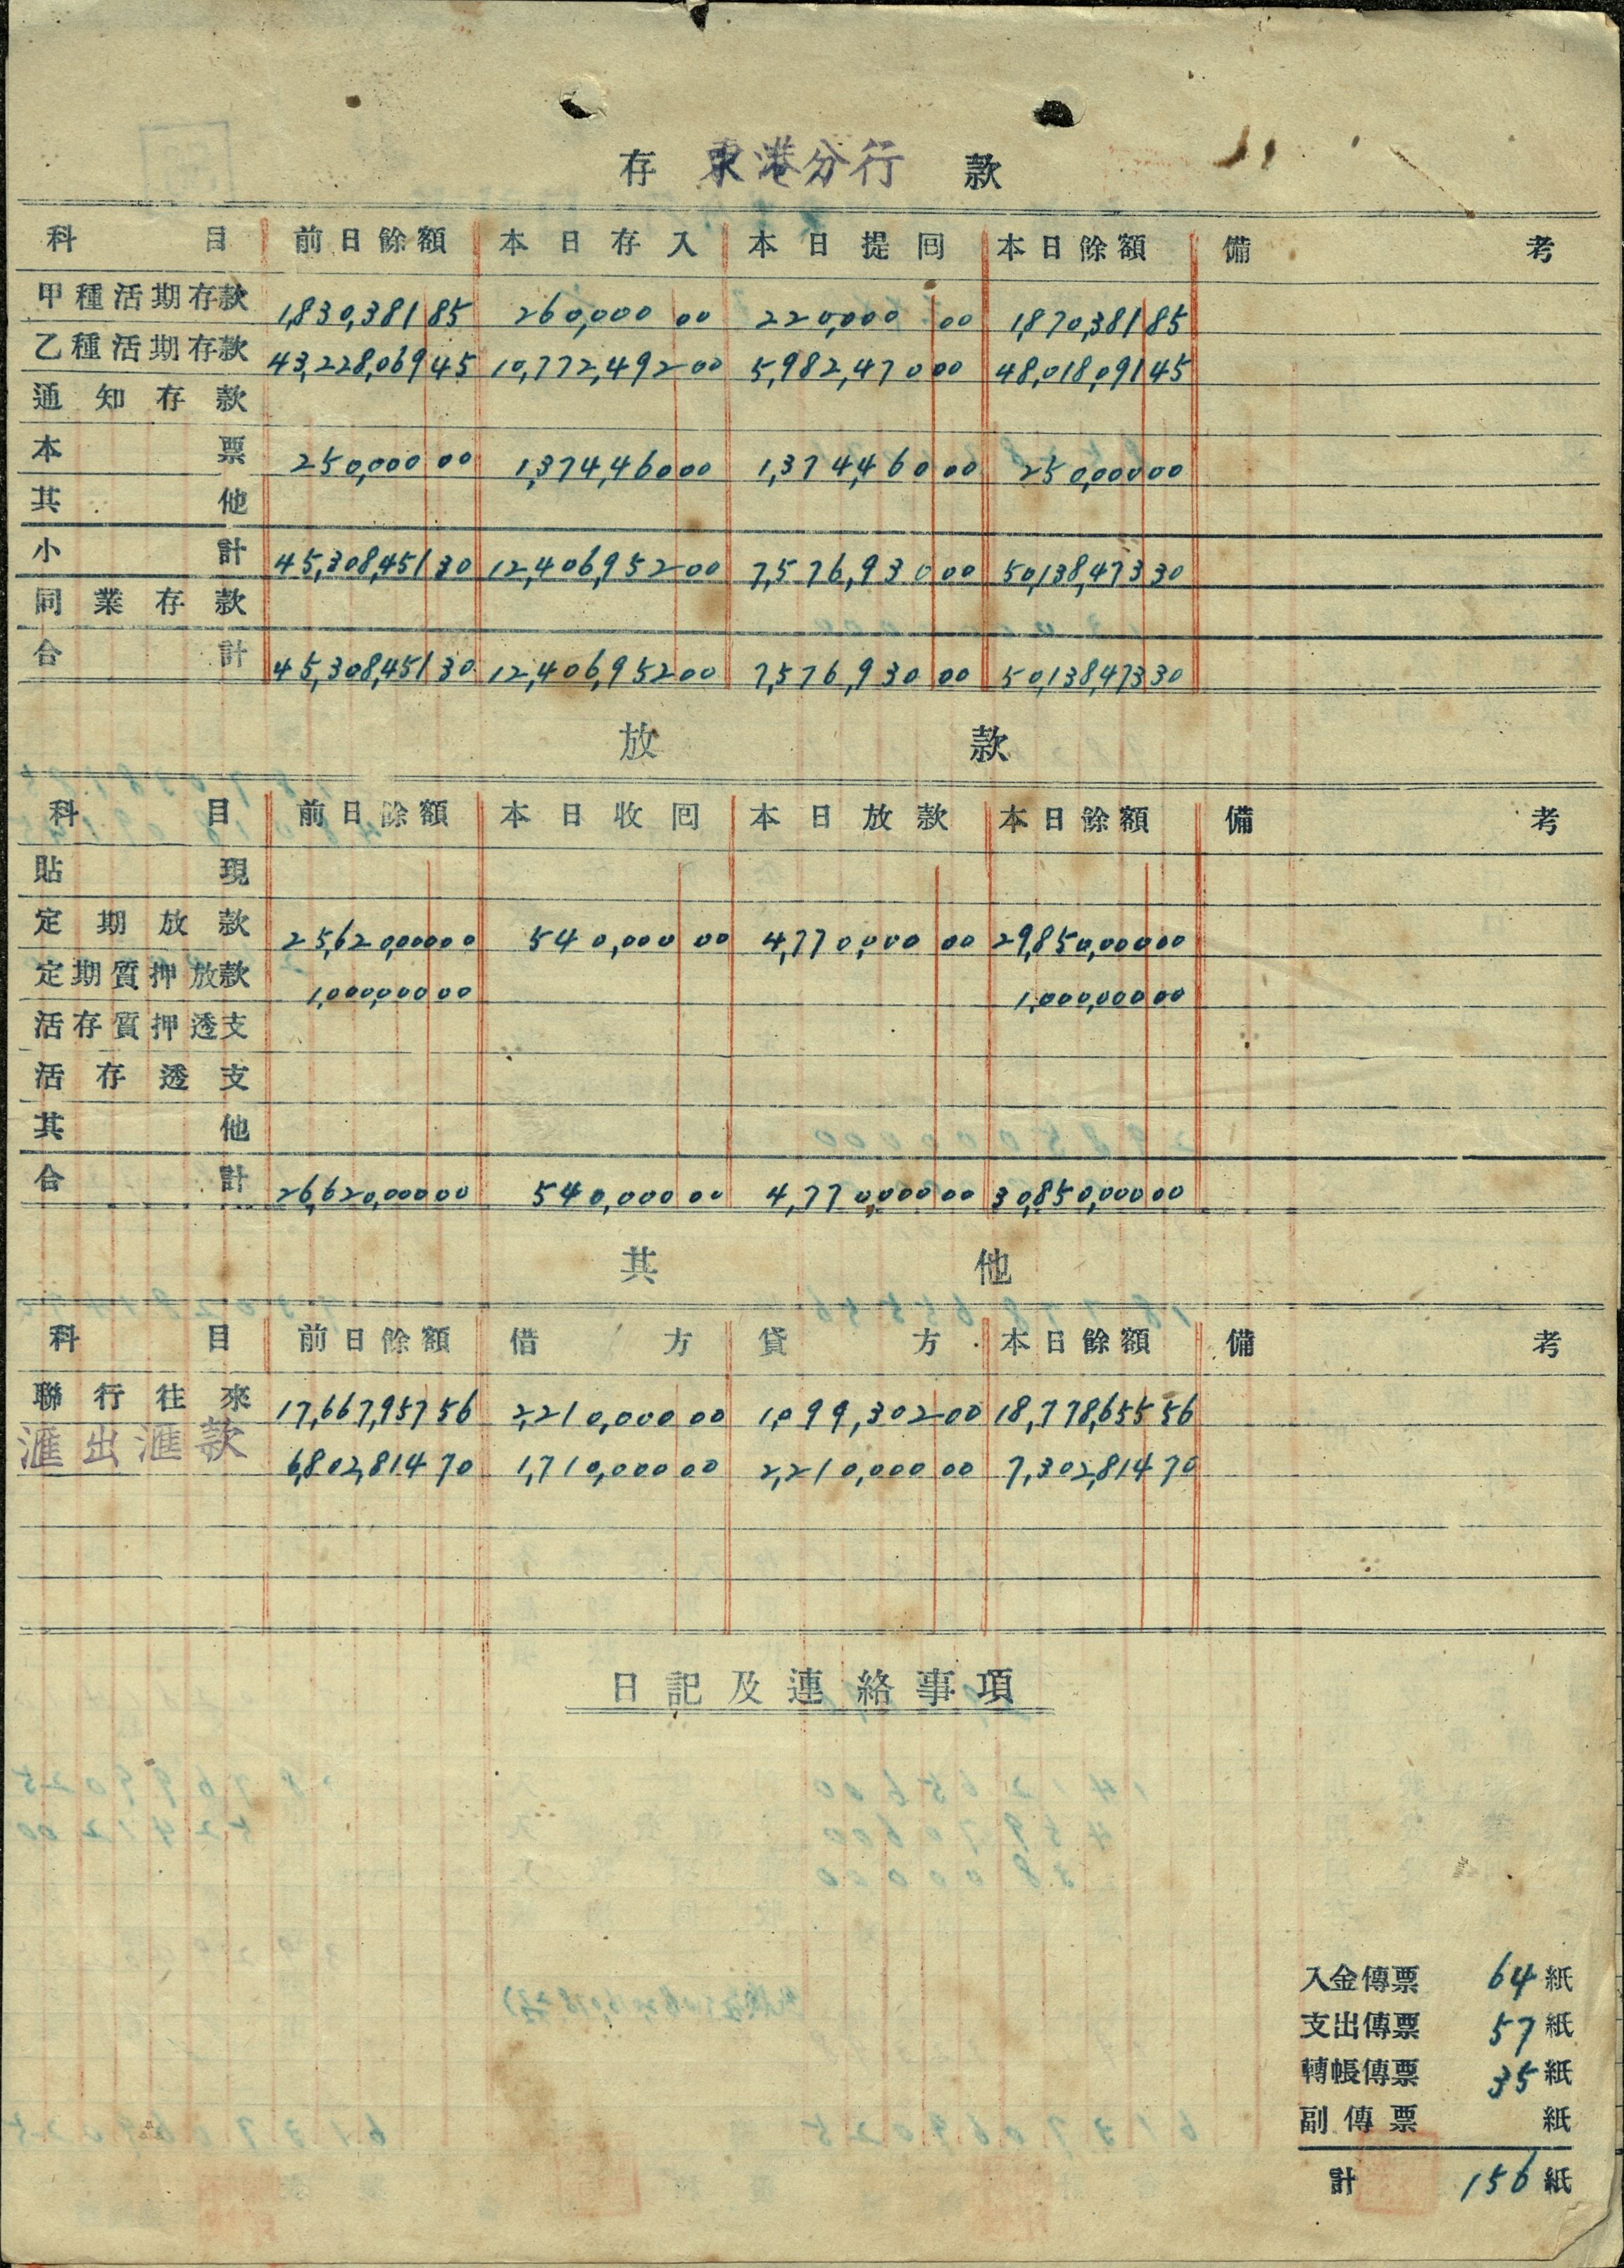 存 東港分行 款
科目 前日餘額 本日存入 本日提囘 本日餘額 備考
甲種活期存款 1,830,381 85 260,000 00 220,000 00 1,870,381 85
乙種活期存款 43,228,069 45 10,772,492 00 5,982,470 00 48,018,091 45
通知存款
本票 250,000 00 1,374,460 00 1,374,460 00 250,000 00
其他
小計 45,308,451 30 12,406,952 00 7,576,930 00 50,138,473 30
同業存款
合計 45,308,451 30 12,406,952 00 7,576,930 00 50,138,473 30
放款
科目 前日餘額 本日收囘 本日放款 本日餘額 備考
貼現
定期放款 25,620,000 00 540,000 00 4,770,000 00 29,850,000 00
定期質押放款 1,000,000 00 1,000,000 00
活存質押透支
活存透支
其他
合計 26,620,000 00 540,000 00 4,770,000 00 30,850,000 00
其他
科目 前日餘額 借方 貸方 本日餘額 備考
聯行往來 17,667,957 56 2,210,000 00 1,099,302 00 18,778,655 56
滙出滙款 6,802,814 70 1,710,000 00 2,210,000 00 7,302,814 70
日記及連絡事項
入金傳票 64 紙
支出傳票 57 紙
轉帳傳票 35 紙
副傳票 紙
計 156 紙